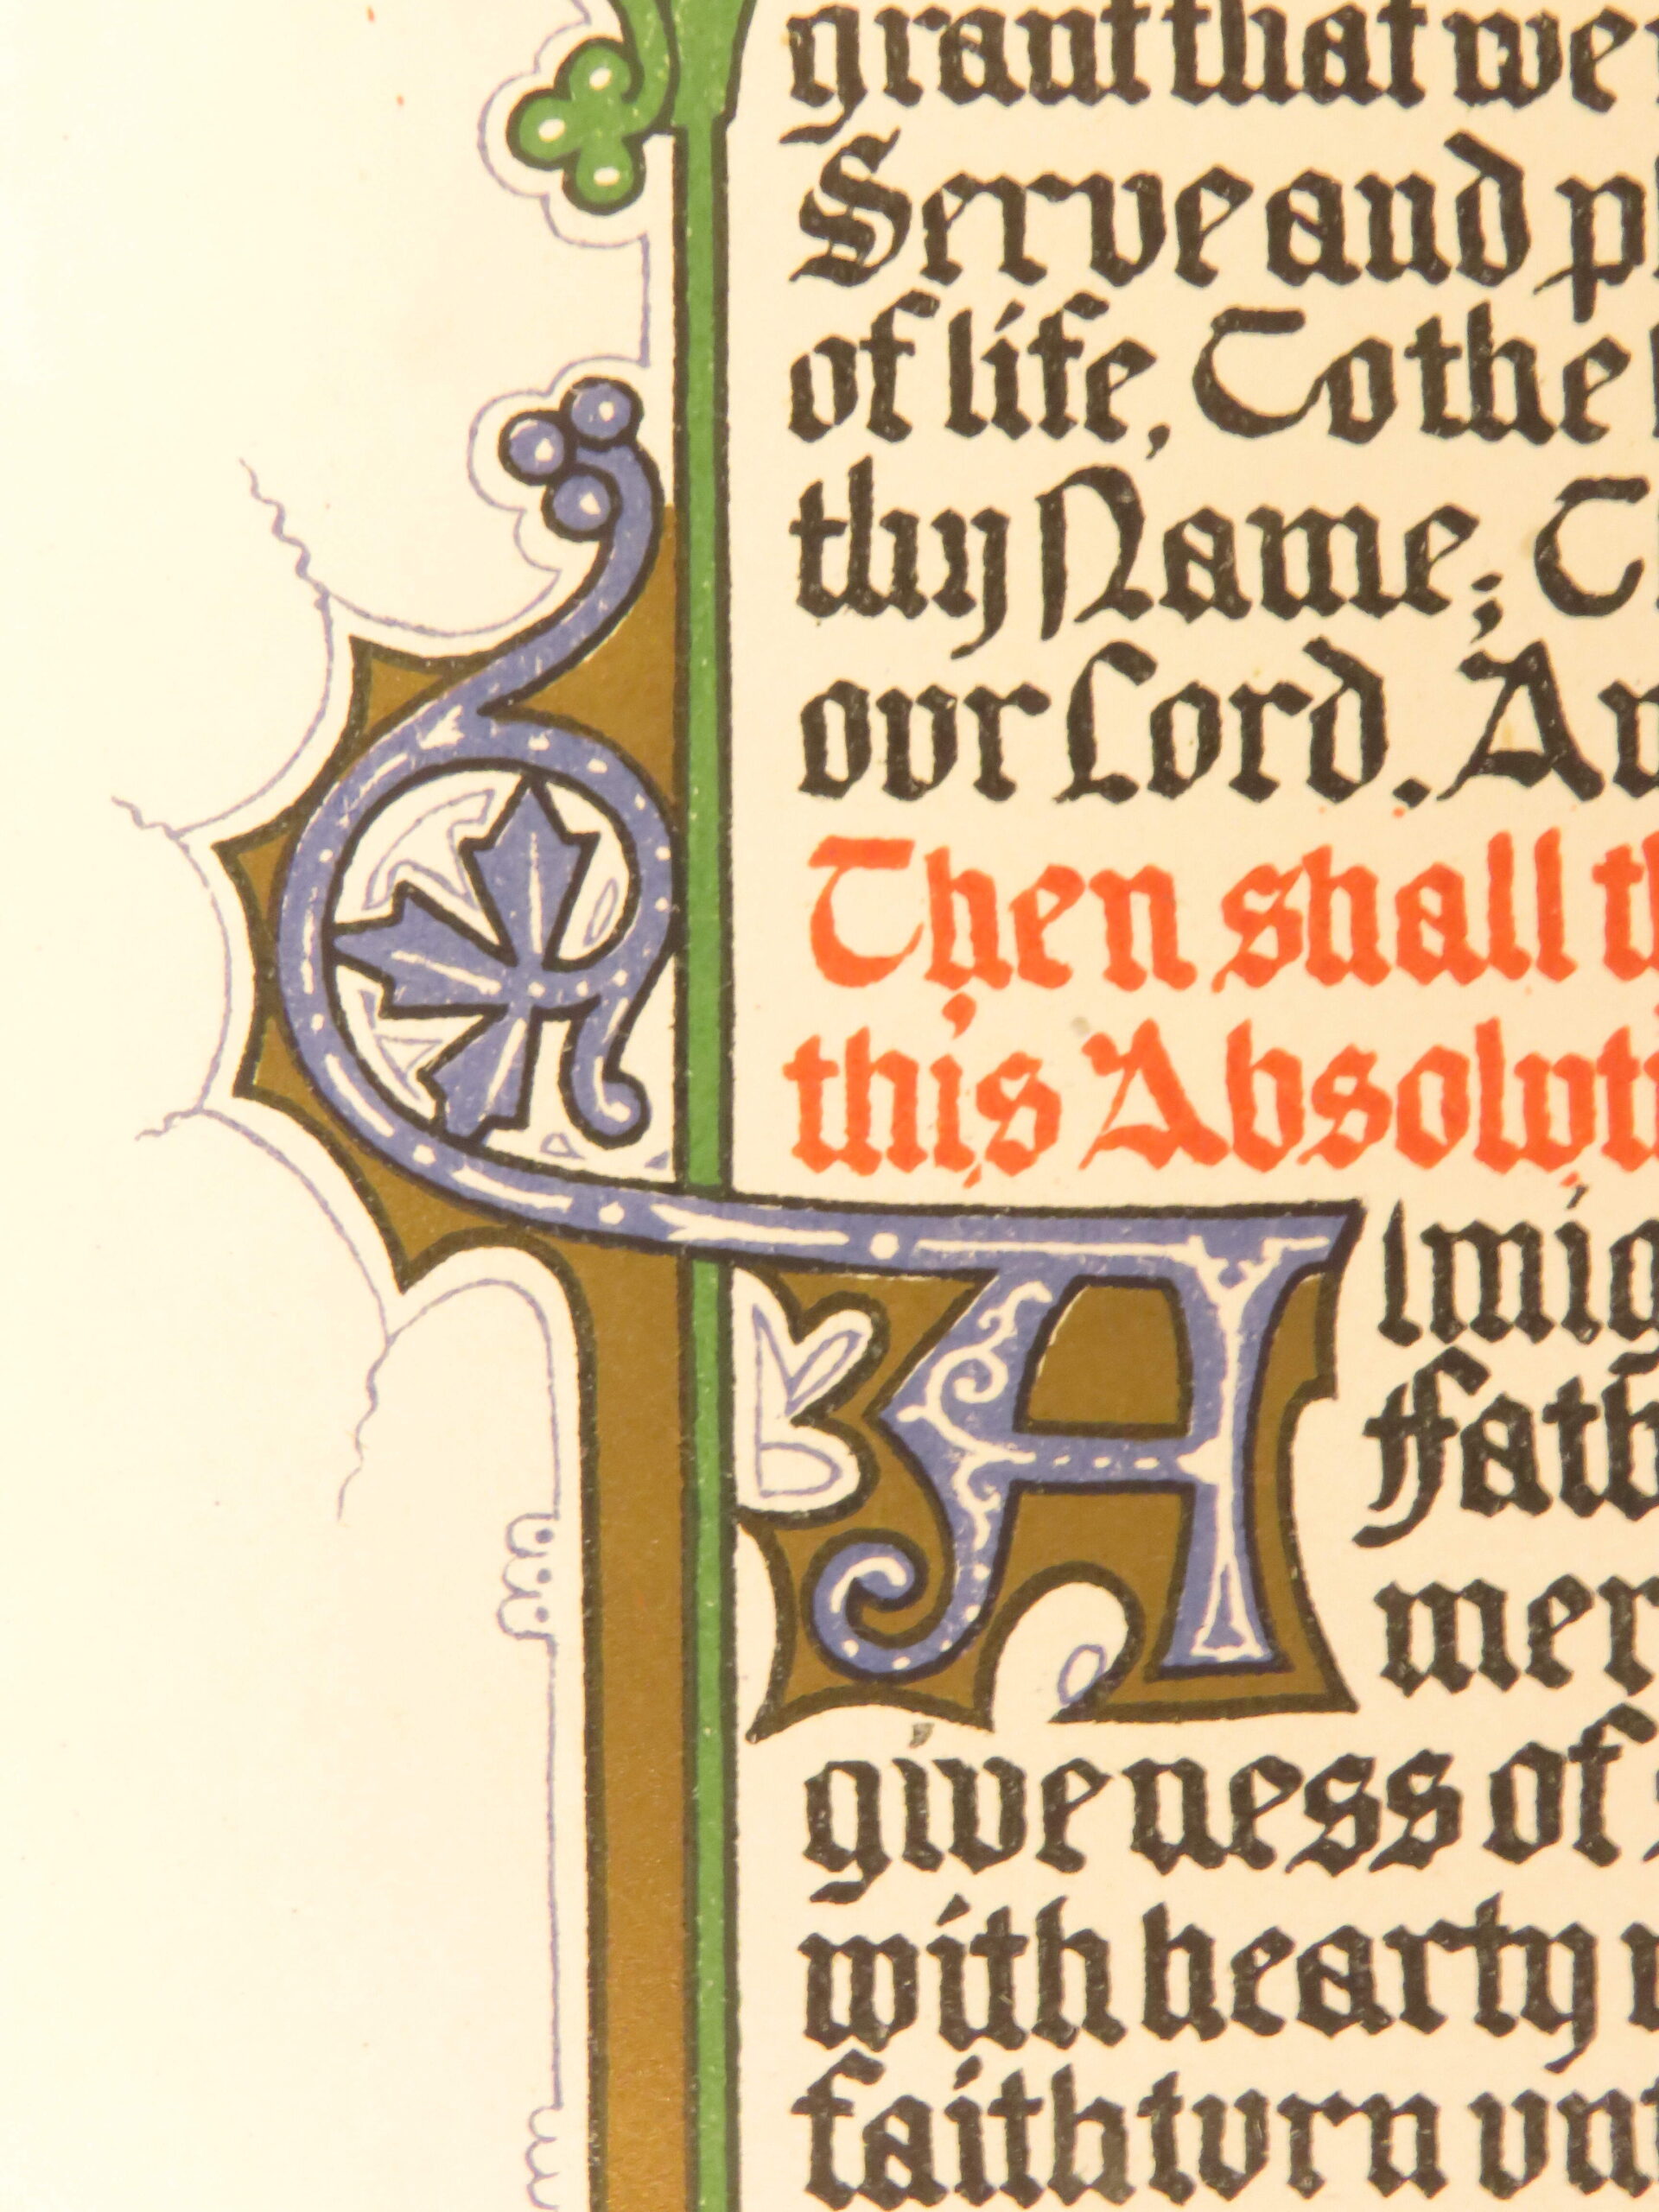 grant that we
Serve and pl
of life, To the
thy Name; T
ovr Lord. Am
Then shall th
this Absolvti
Almig
ffath
mer
giveness of
with hearty
faith tvrn vnt